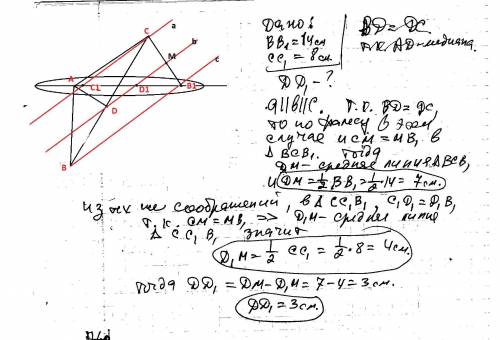 a
b
c
C
M
A
C1
D1
B1
D
B
Дано:
BB₁=14см
CC₁=8см.
DD₁-?
BD=DC
т.к AD-медиана.
a||b||c. Т.к. BD=DC,
то по Фалесу в этом
случае и CM=MB₁ в
Δ BCB₁. Тогда
DM-средняя линия ΔBCB₁
и DM=½BB₁=½·14=7см.
из тех же соображений, в Δ CC₁B₁ C₁D₁=D₁B₁
т.к. CM=MB₁ => D₁M-средняя линия
Δ CC₁B₁ значит
D₁M=½ CC₁=½·8=4см.
тогда DD₁=DM-D₁M=7-4=3см.
DD₁=3см.